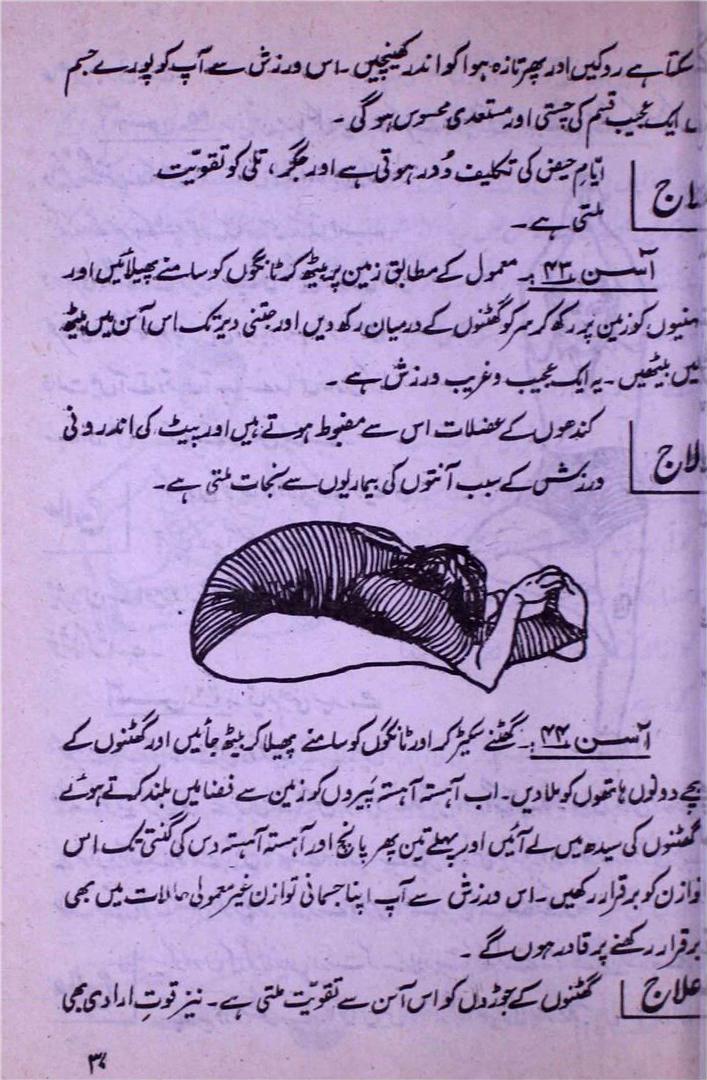 سکتا ہے روکیں اور پھر تازہ ہوا کو اندر کھینچیں۔ اس ورزش سے آپ کو پورے جسم
ایک عجیب قسم کی چستی اور مستعدی محسوس ہوگی۔
لاج ایّامِ حیض کی تکلیف دُور ہوتی ہے اور جگر، تلی کو تقویت
ملتی ہے۔
آسن ۴۳:۔ معمول کے مطابق زمین پر بیٹھ کر ٹانگوں کو سامنے پھیلائیں اور
ہنیوں کو زمین پر رکھ کر سر کو گھٹنوں کے درمیان رکھ دیں اور جتنی دیر تک اس آسن میں بیٹھ
یں بیٹھیں۔ یہ ایک عجیب و غریب ورزش ہے۔
لاج کندھوں کے عضلات اس سے مضبوط ہوتے ہیں اور پیٹ کی اندرونی
ورزش کے سبب آنتوں کی بیماریوں سے نجات ملتی ہے۔
آسن ۴۴:۔ گھٹنے سکیڑ کر اور ٹانگوں کو سامنے پھیلا کر بیٹھ جائیں اور گھٹنوں کے
نیچے دونوں ہاتھوں کو ملا دیں۔ اب آہستہ آہستہ پیروں کو زمین سے فضا میں بلند کرتے ہوئے
گھٹنوں کی سیدھ میں لے آئیں اور پہلے تین پھر پانچ اور آہستہ آہستہ دس کی گنتی تک اس
توازن کو برقرار رکھیں۔ اس ورزش سے آپ اپنا جسمانی توازن غیر معمولی حالات میں بھی
برقرار رکھنے پر قادر ہوں گے۔
علاج گھٹنوں کے جوڑوں کو اس آسن سے تقویت ملتی ہے۔ نیز قوتِ ارادی بھی